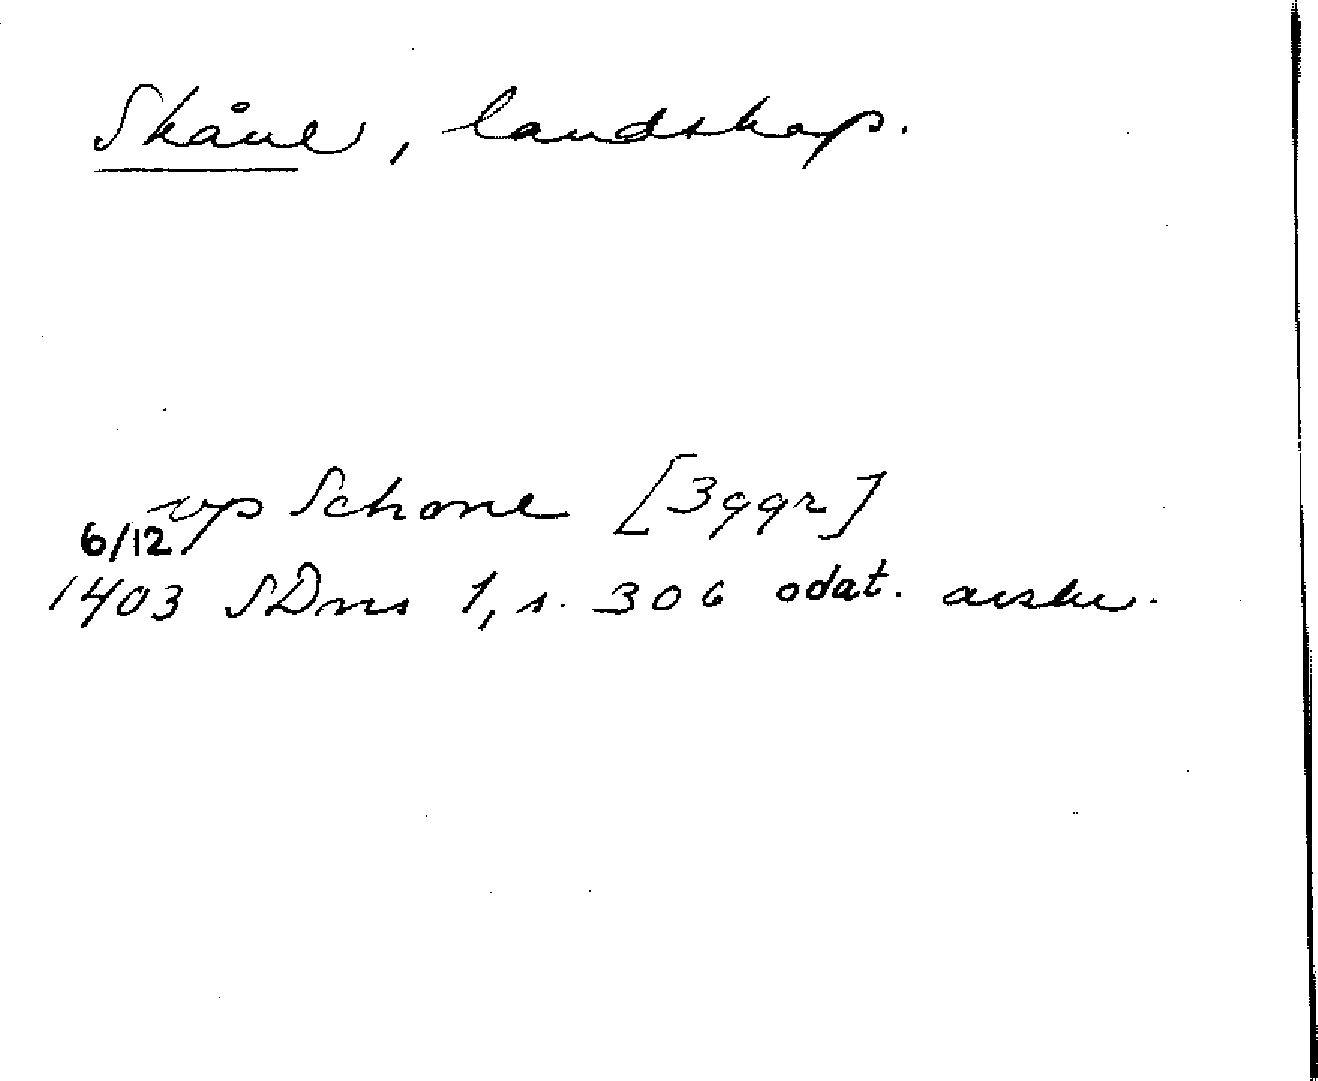 Skåne, landskap.
vp Schone [3ggr]
6/12
1403 SDns 1, s. 306 odat. avskr.